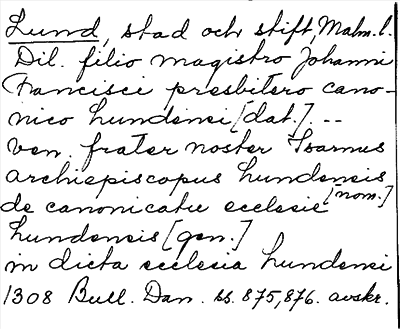 Lund, stad och stift, Malm.l.
Dil. filio magistro Johanni
Francisci presbitero cano-
nico Lundensi [dat.] ---
ven. frater noster Isarnus
archiepiscopus Lundensis [nom.]
de canonicatu ecclesie
Lundensis [gen.]
in dicta ecclesia Lundensi
1308 Bull. Dan. ss. 875, 876. avskr.